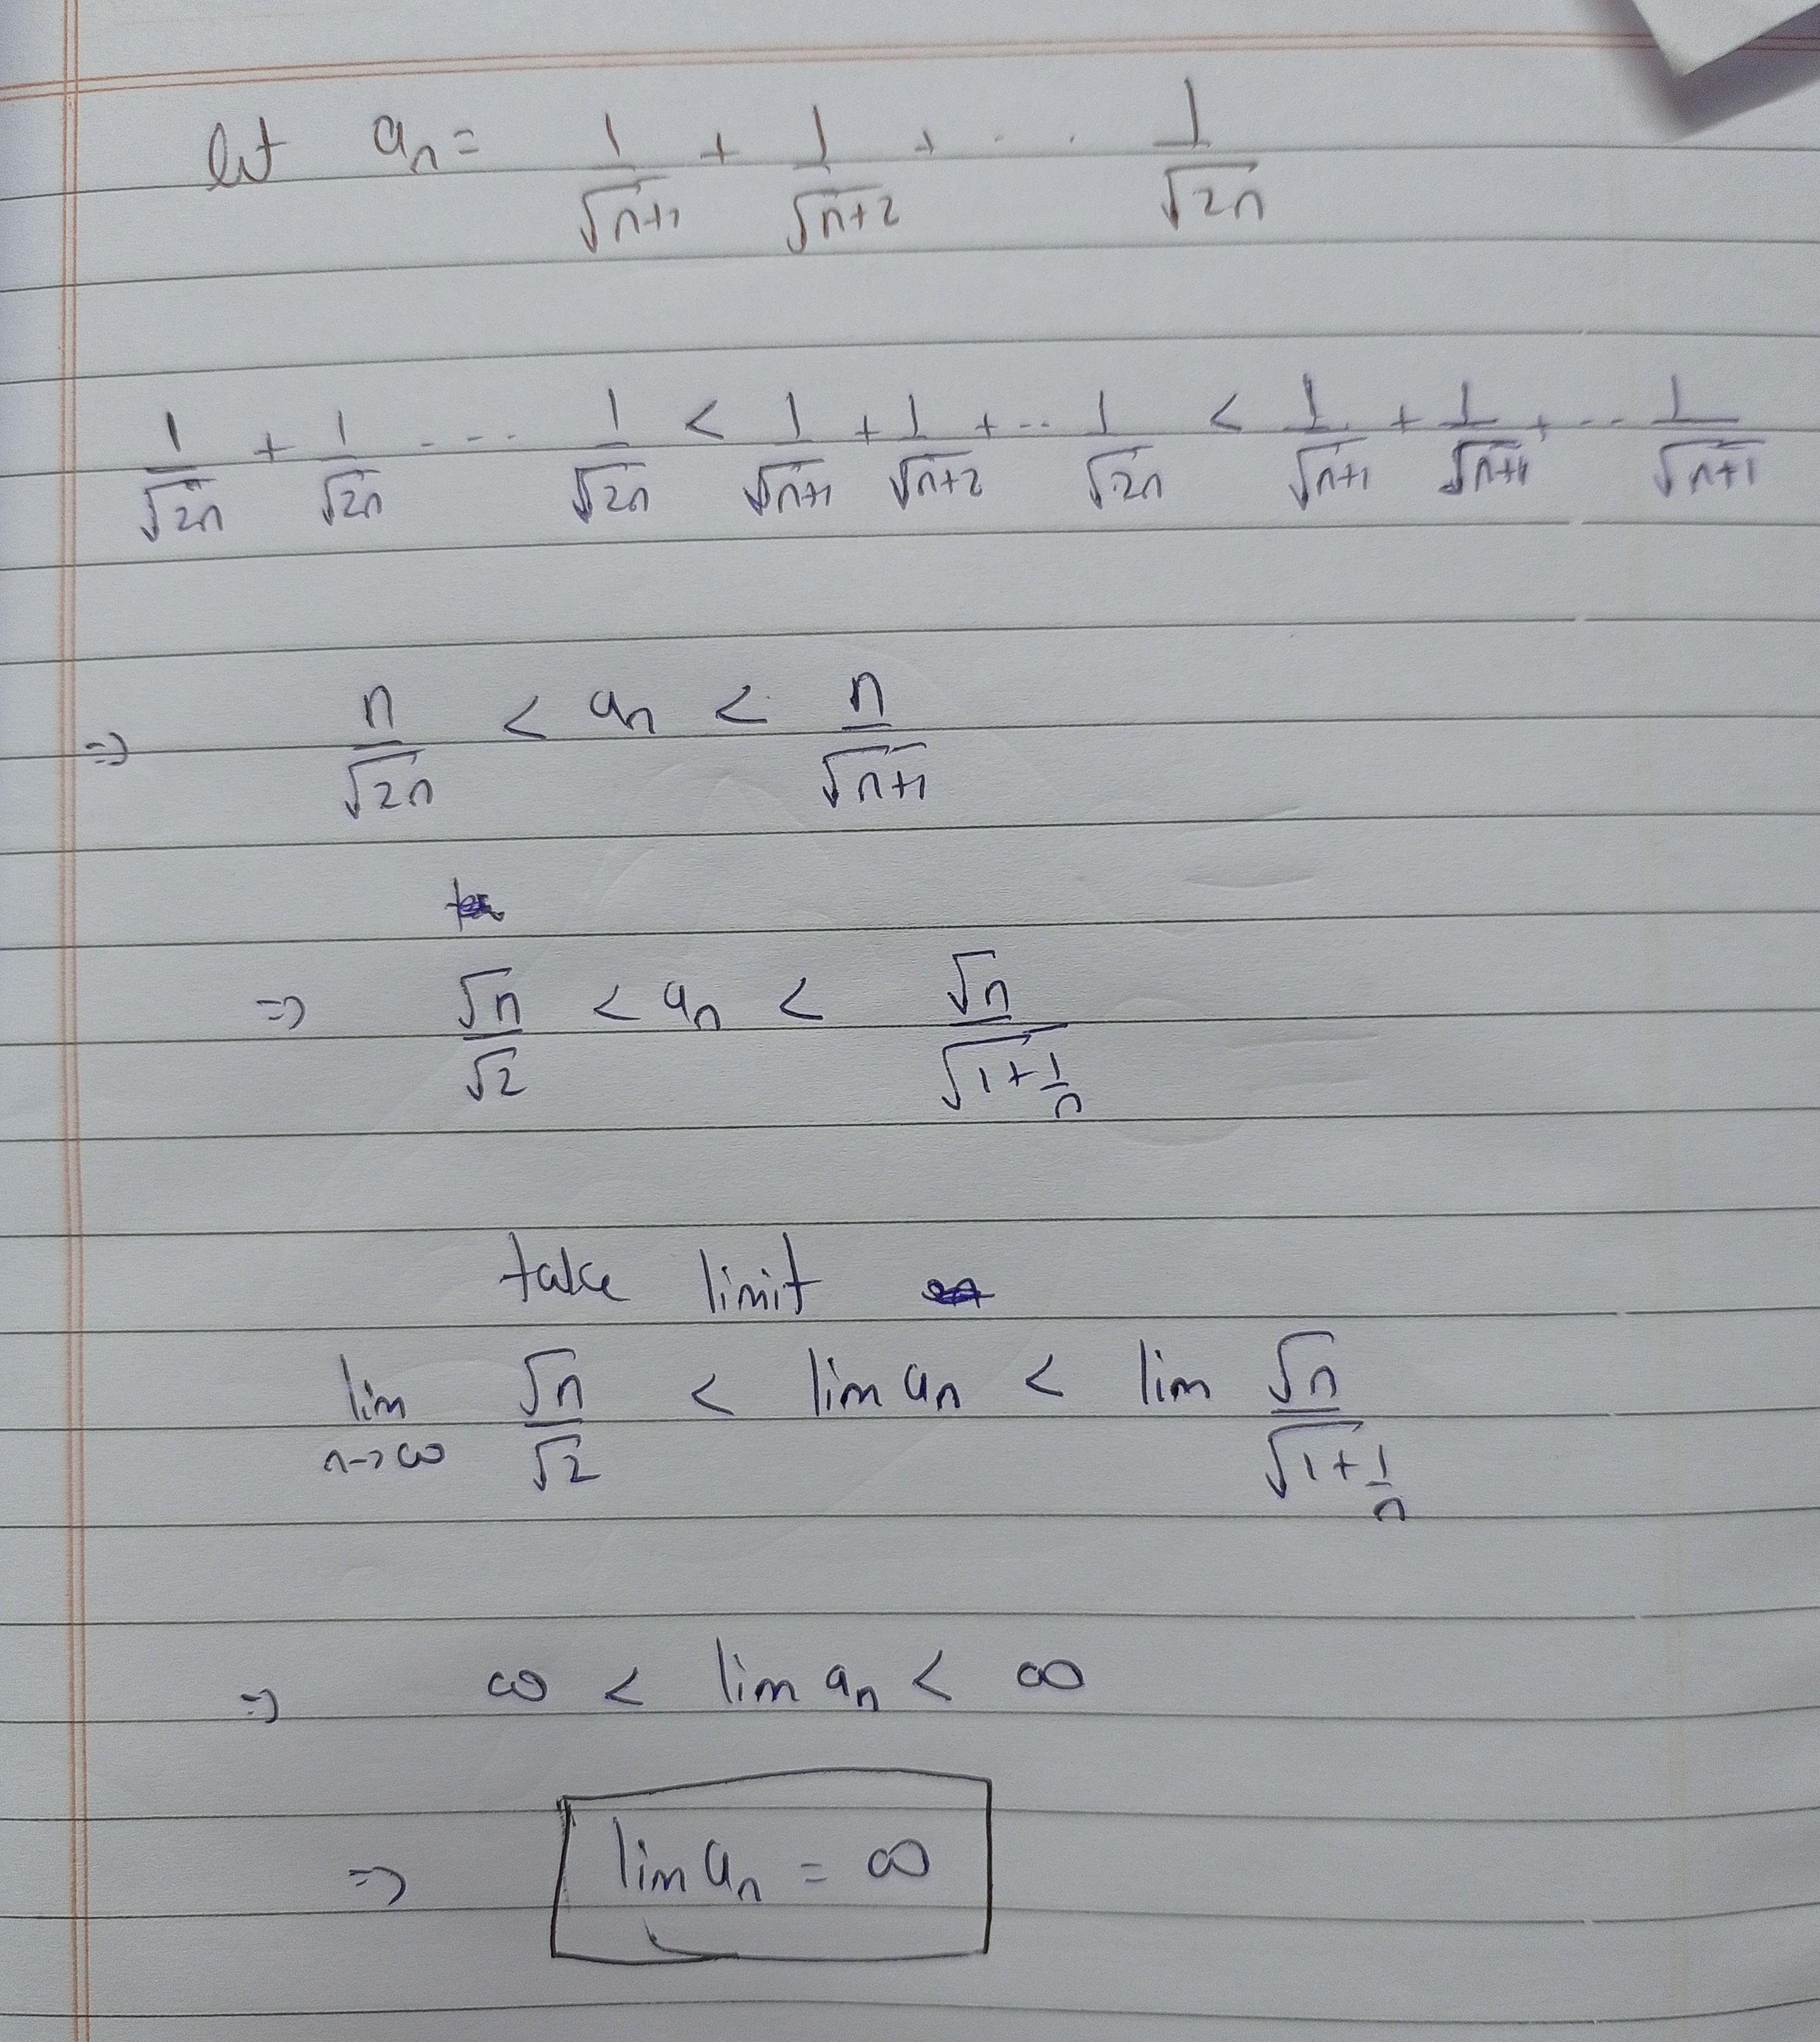 let aₙ = 1/√(n+1) + 1/√(n+2) + . . 1/√(2n)
1/√(2n) + 1/√(2n) - - - 1/√(2n) < 1/√(n+1) + 1/√(n+2) + ... 1/√(2n) < 1/√(n+1) + 1/√(n+1) + ... 1/√(n+1)
⇒ n/√(2n) < aₙ < n/√(n+1)
⇒ √n/√2 < aₙ < √n/√(1+1/n)
take limit
lim n→∞ √n/√2 < lim aₙ < lim √n/√(1+1/n)
⇒ ∞ < lim aₙ < ∞
⇒ lim aₙ = ∞